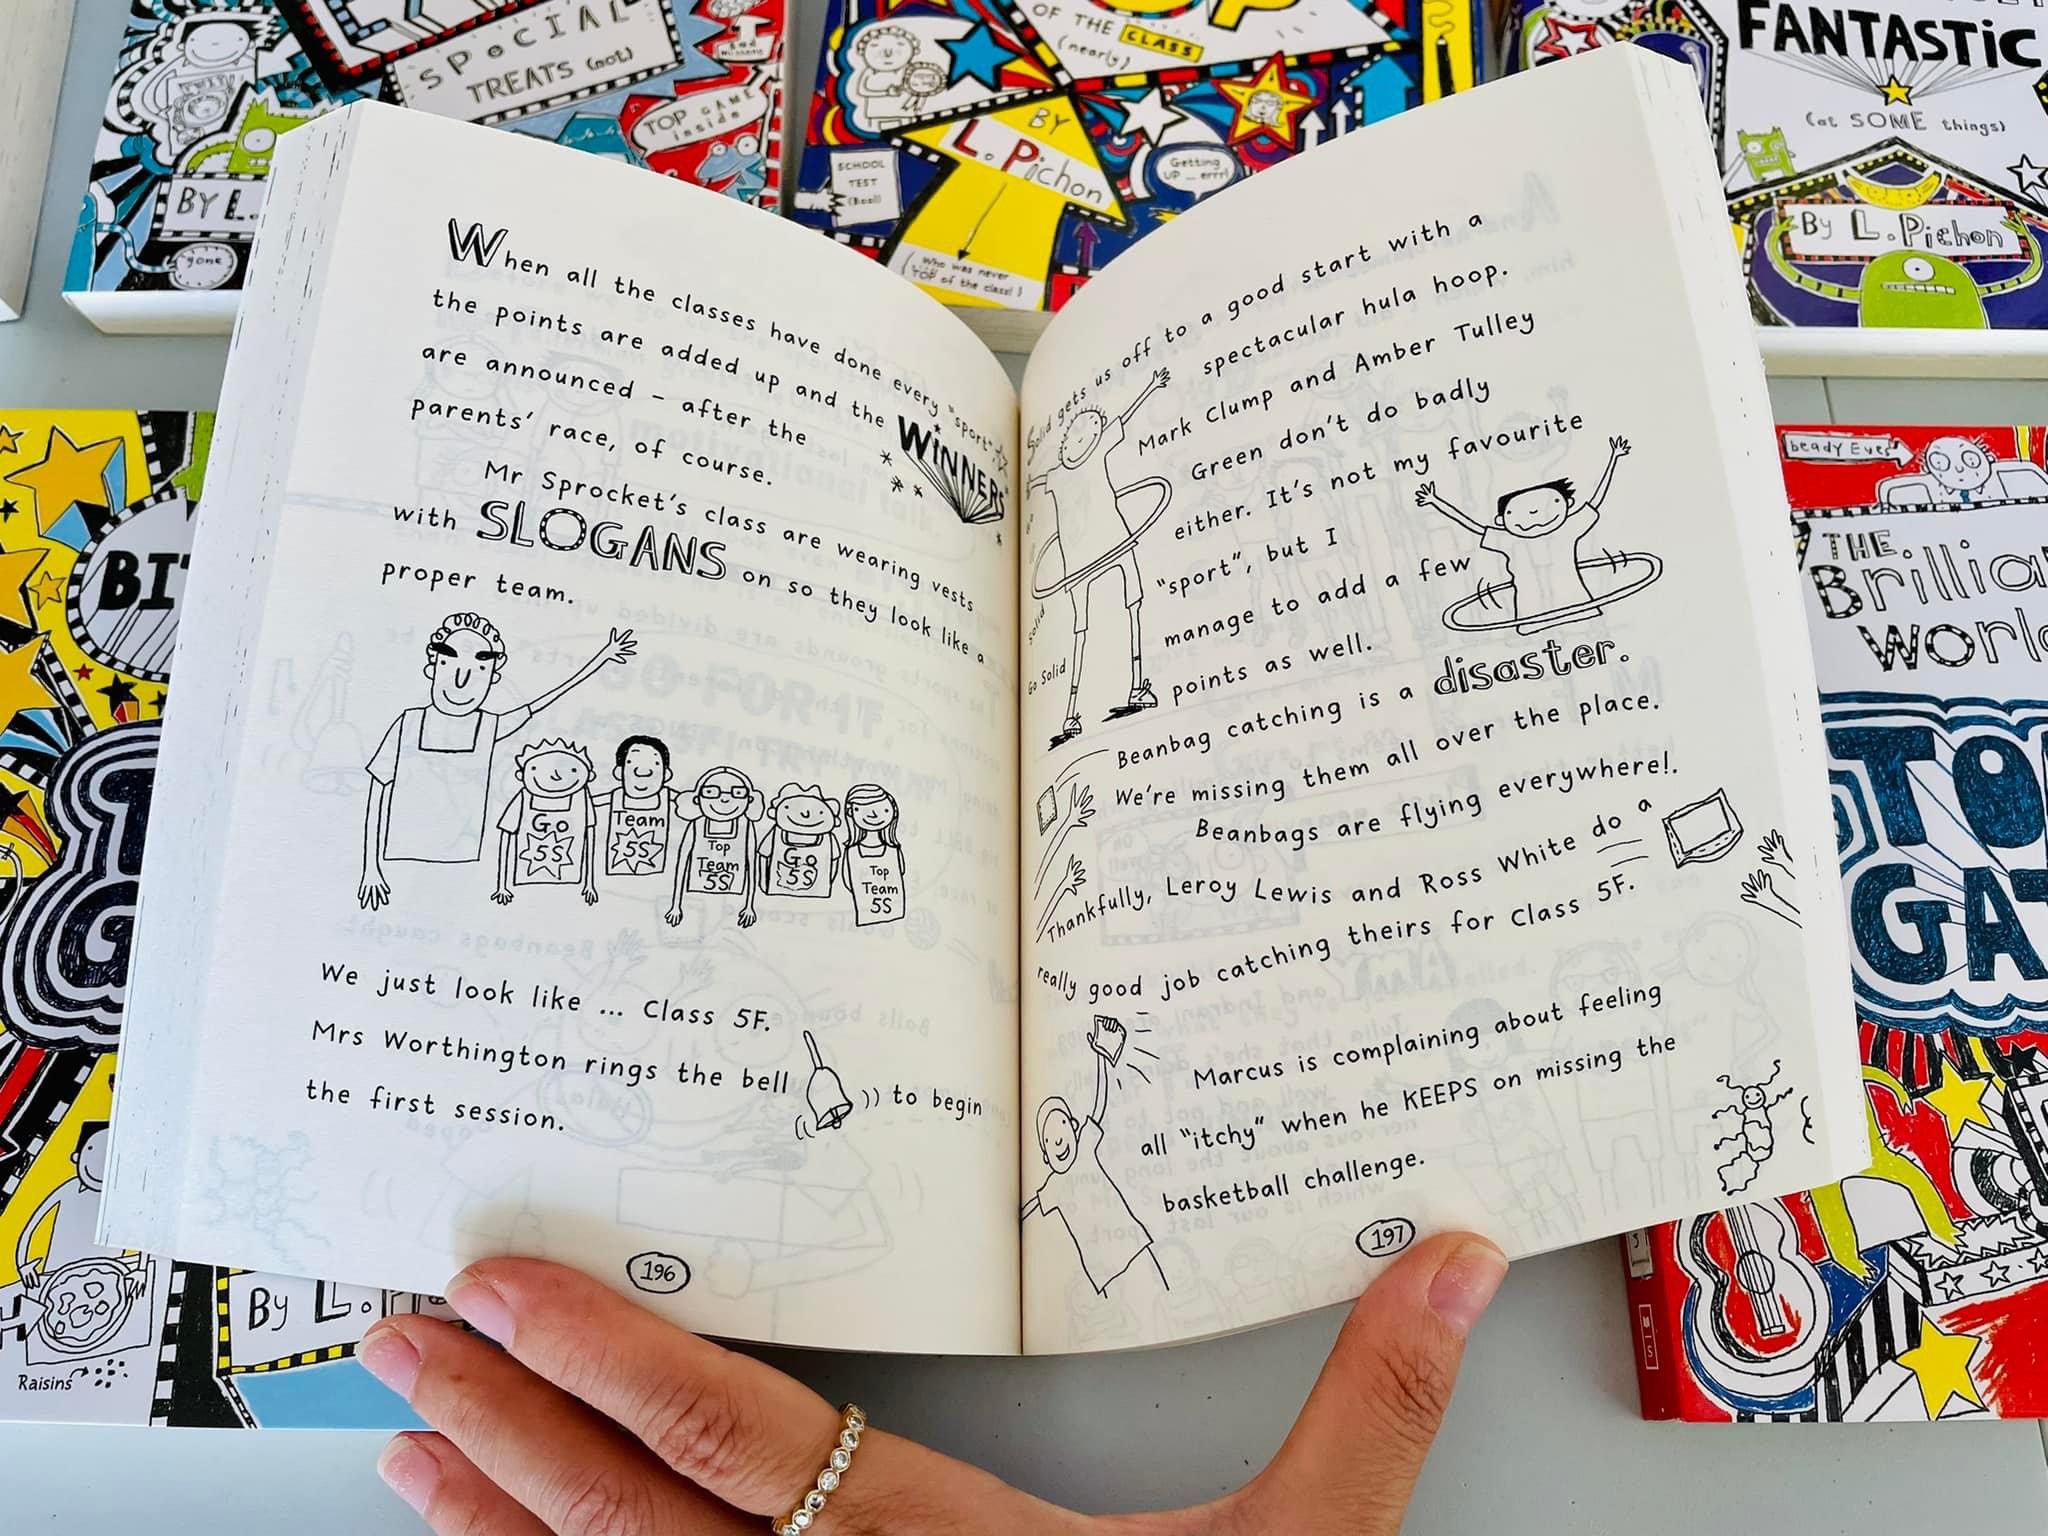 SPECIAL
TREATS (not)
TOP GAME
inside
BY L.
gone
OF THE CLASS
(nearly)
BY
L. Pichon
SCHOOL
TEST
(Boo!)
Getting
UP _ errr!
(Who was never
TOP of the class!)
FANTASTIC
(at SOME things)
By L. Pichon
When all the classes have done every "sport"
the points are added up and the WINNERS
are announced – after the
parents' race, of course.
Mr Sprocket's class are wearing vests
with SLOGANS on so they look like a
proper team.
Go
5S
Team
5S
Top
Team
5S
Go
5S
Top
Team
5S
We just look like ... Class 5F.
Mrs Worthington rings the bell to begin
the first session.
196
Solid gets us off to a good start with a
spectacular hula hoop.
Mark Clump and Amber Tulley
Green don't do badly
either. It's not my favourite
"sport", but I
manage to add a few
points as well.
Solid
Go Solid
Beanbag catching is a disaster.
We're missing them all over the place.
Beanbags are flying everywhere!.
Thankfully, Leroy Lewis and Ross White do a
really good job catching theirs for Class 5F.
Marcus is complaining about feeling
all "itchy" when he KEEPS on missing the
basketball challenge.
197
By L.
Raisins
beady Eyes
THE
Brillia
world
TO
GAT